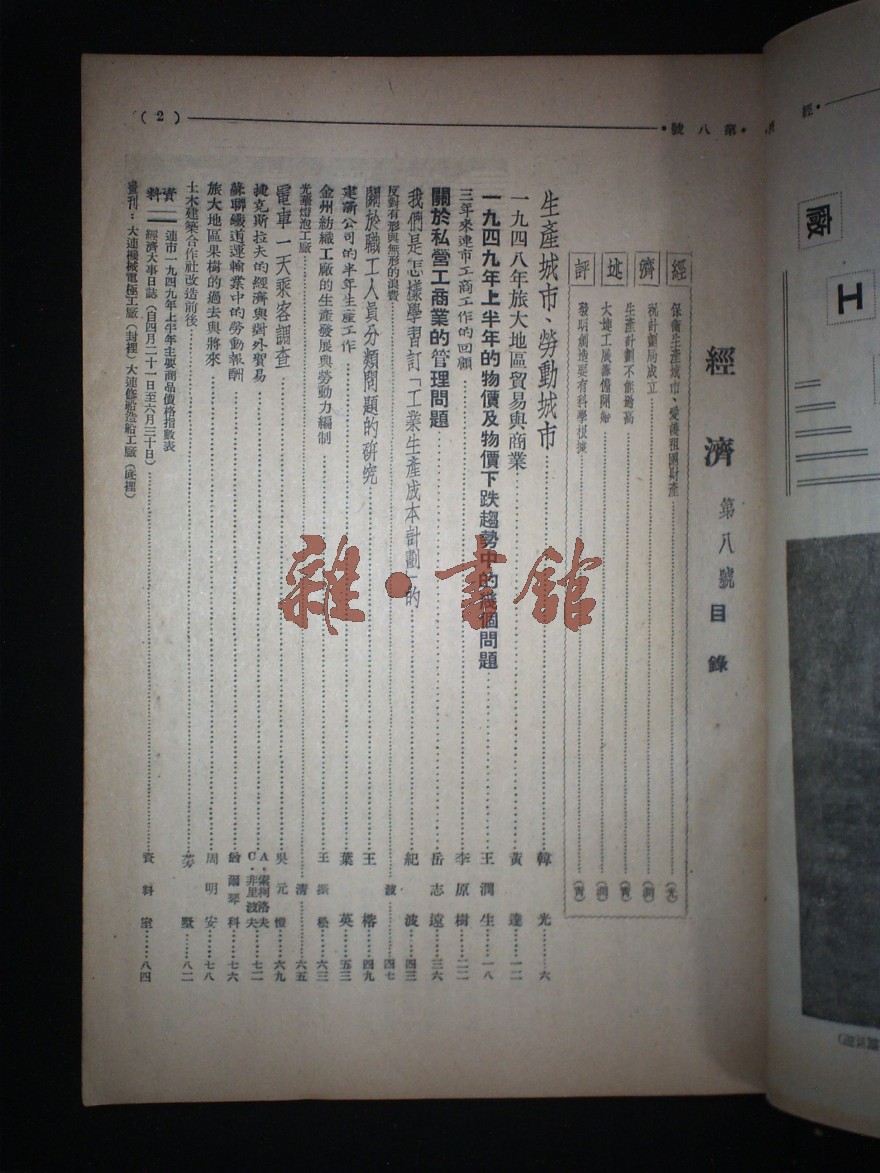 (2)
第八號
經濟 第八號 目錄
經濟述評
保衛生產城市、愛護祖國財產
祝計劃局成立
生產計劃不能過高
大連工展籌備開始
發明創造要有科學根據
生產城市、勞動城市 韓光 六
一九四八年旅大地區貿易與商業 黃達 一二
一九四九年上半年的物價及物價下跌趨勢中的幾個問題 王潤生 一八
三年來連市工商工作的回顧 李原樹 二二
關於私營工商業的管理問題 岳志遠 三六
我們是怎樣學習訂「工業生產成本計劃」的 紀波 四三
反對有形與無形的浪費 波 四七
關於職工人員分類問題的研究 王榕 四九
建新公司的半年生產工作 葉英 五三
金州紡織工廠的生產發展與勞動力編制 王振松 六三
光華燈泡工廠 清 六五
電車一天乘客調查 吳元愷 六九
捷克斯拉夫的經濟與對外貿易 A·索柯洛夫 C·非里波夫 七二
蘇聯鐵道運輸業中的勞動報酬 爾琴科 七六
旅大地區果樹的過去與將來 周明安 七八
土木建築合作社改造前後 芳墅 八二
資料 連市一九四九年上半年主要商品價格指數表
經濟大事日誌(自四月二十一日至六月三十日) 資料室 八四
畫刊:大連機械電極工廠(封裡)大連修船造船工廠(底裡)
雜·書館
廠
工
經